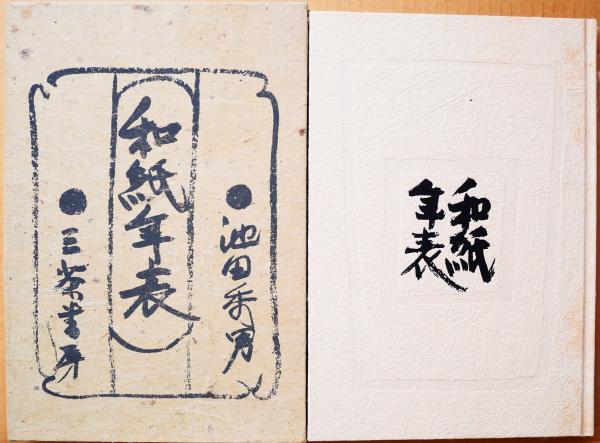 池田秀男
和紙年表
三茶書房
和紙
年表